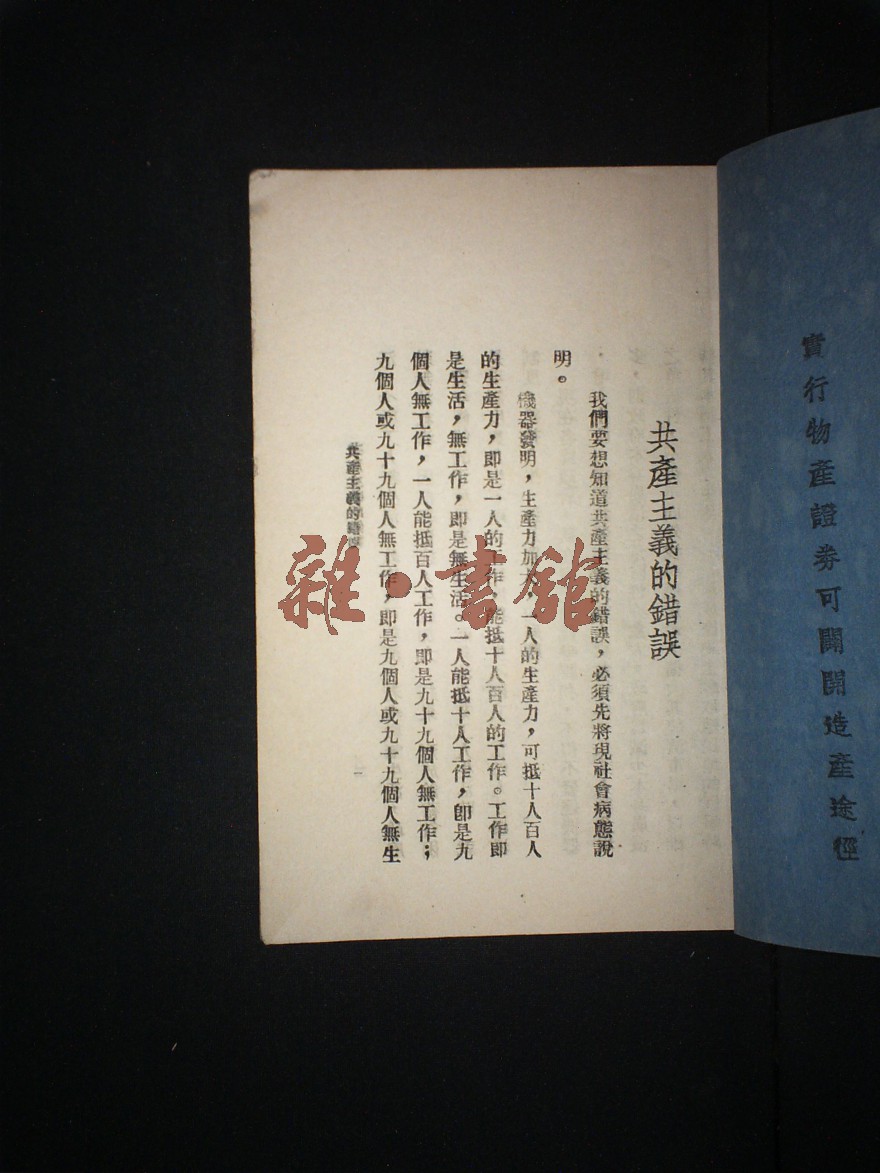 實行物產證券可闢開造產途徑
共產主義的錯誤
我們要想知道共產主義的錯誤，必須先將現社會病態說
明。
機器發明，生產力加大，一人的生產力，可抵十人百人
的生產力，即是一人的工作，能抵十人百人的工作。工作即
是生活，無工作，即是無生活。一人能抵十人工作，即是九
個人無工作，一人能抵百人工作，即是九十九個人無工作；
九個人或九十九個人無工作，即是九個人或九十九個人無生
共產主義的錯誤
一
雜·書館